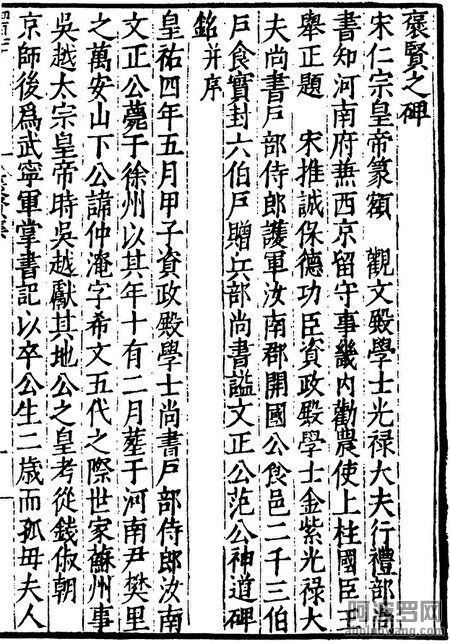 褒賢之碑
宋仁宗皇帝篆額　觀文殿學士光祿大夫行禮部尚
書知河南府兼西京留守事畿内勸農使上柱國臣王
舉正題　宋推誠保德功臣資政殿學士金紫光祿大
夫尚書戸部侍郎護軍汝南郡開國公食邑二千三伯
戸食實封六伯戸贈兵部尚書謚文正公范公神道碑
銘并序
皇祐四年五月甲子資政殿學士尚書戸部侍郎汝南
文正公薨于徐州以其年十有二月葬于河南尹樊里
之萬安山下公諱仲淹字希文五代之際世家蘇州事
吳越太宗皇帝時吳越獻其地公之皇考從錢俶朝
京師後爲武寧軍掌書記以卒公生二歳而孤毋夫人